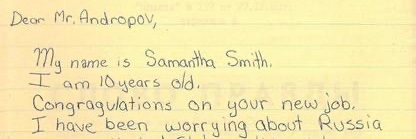 Dear Mr. Andropov,
My name is Samantha Smith.
I am 10 years old.
Congragulations on your new job.
I have been worrying about Russia